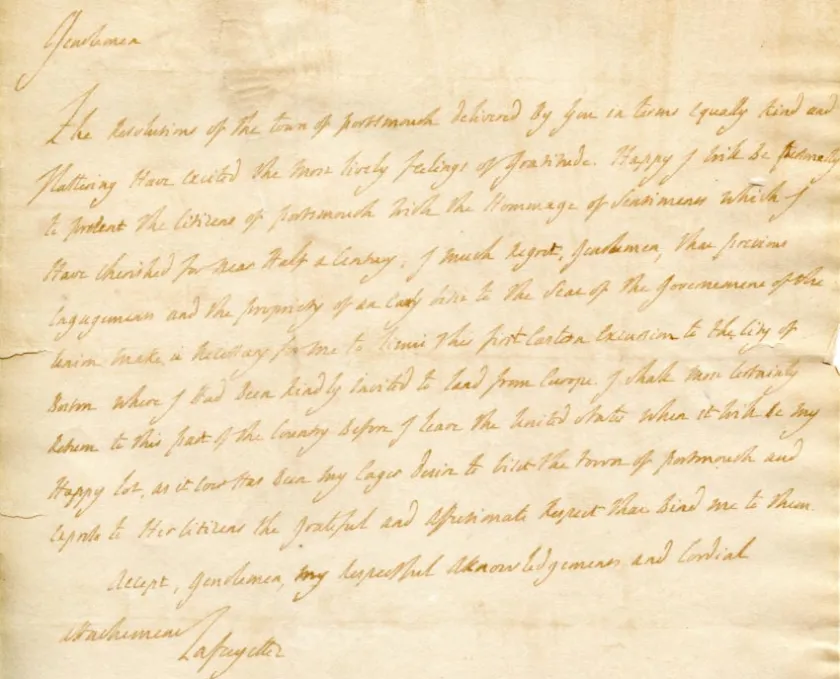 Gentlemen
The Resolutions of the town of portsmouth delivered By You in terms equally Kind and
flattering Have excited the most lively feelings of Gratitude. Happy I will Be personally
to present the Citizens of portsmouth with the Hommage of Sentiments which I
Have cherished for near Half a Century. I much regret, gentlemen, that previous
Engagements and the propriety of an early visit to the Seat of the Governement of the
Union make it necessary for me to limit this first Eastern Excursion to the City of
Boston where I Had Been kindly invited to land from Europe. I shall most certainly
Return to this part of the Country Before I leave the United States when it will Be my
Happy lot, as it ever Has Been my Eager Desire to visit the town of portsmouth and
express to Her Citizens the grateful and affectionate Respect that Bind me to them.
Accept, gentlemen, my respectful aknowledgements and Cordial
attachement
Lafayette